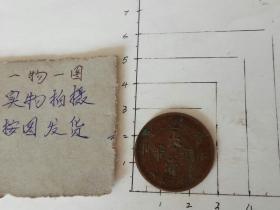 一物一图
实物拍摄
按图发货
7
6
5
4
3
2
1
1
2
3
4